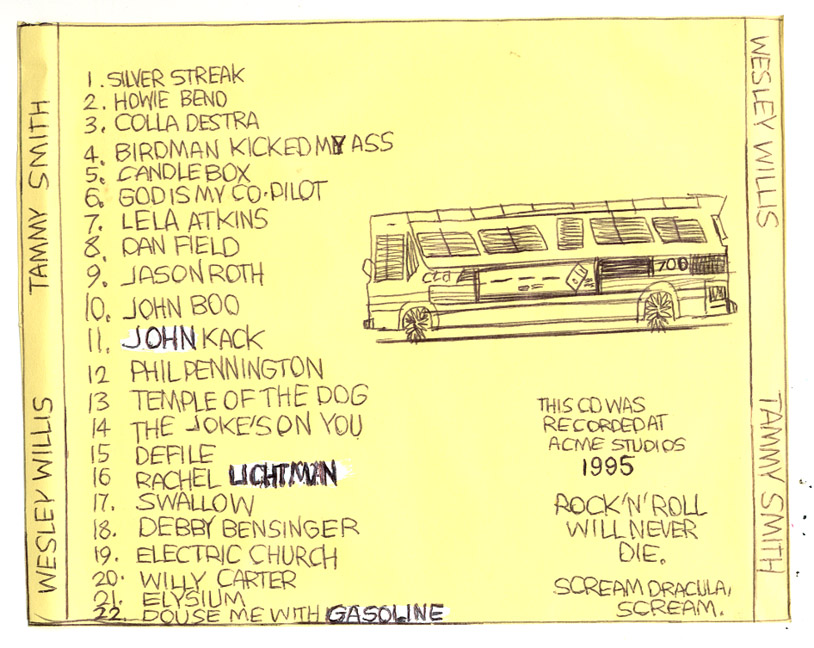 TAMMY SMITH
WESLEY WILLIS
1. SILVER STREAK
2. HOWIE BEND
3. COLLA DESTRA
4. BIRDMAN KICKED MY ASS
5. CANDLEBOX
6. GOD IS MY CO-PILOT
7. LELA ATKINS
8. DAN FIELD
9. JASON ROTH
10. JOHN BOO
11. JOHN KACK
12 PHIL PENNINGTON
13 TEMPLE OF THE DOG
14 THE JOKE'S ON YOU
15 DEFILE
16 RACHEL LICHTMAN
17. SWALLOW
18. DEBBY BENSINGER
19. ELECTRIC CHURCH
20. WILLY CARTER
21. ELYSIUM
22. DOUSE ME WITH GASOLINE
CTA
700
THIS CD WAS
RECORDED AT
ACME STUDIOS
1995
ROCK'N'ROLL
WILL NEVER
DIE.
SCREAM DRACULA,
SCREAM.
WESLEY WILLIS
TAMMY SMITH